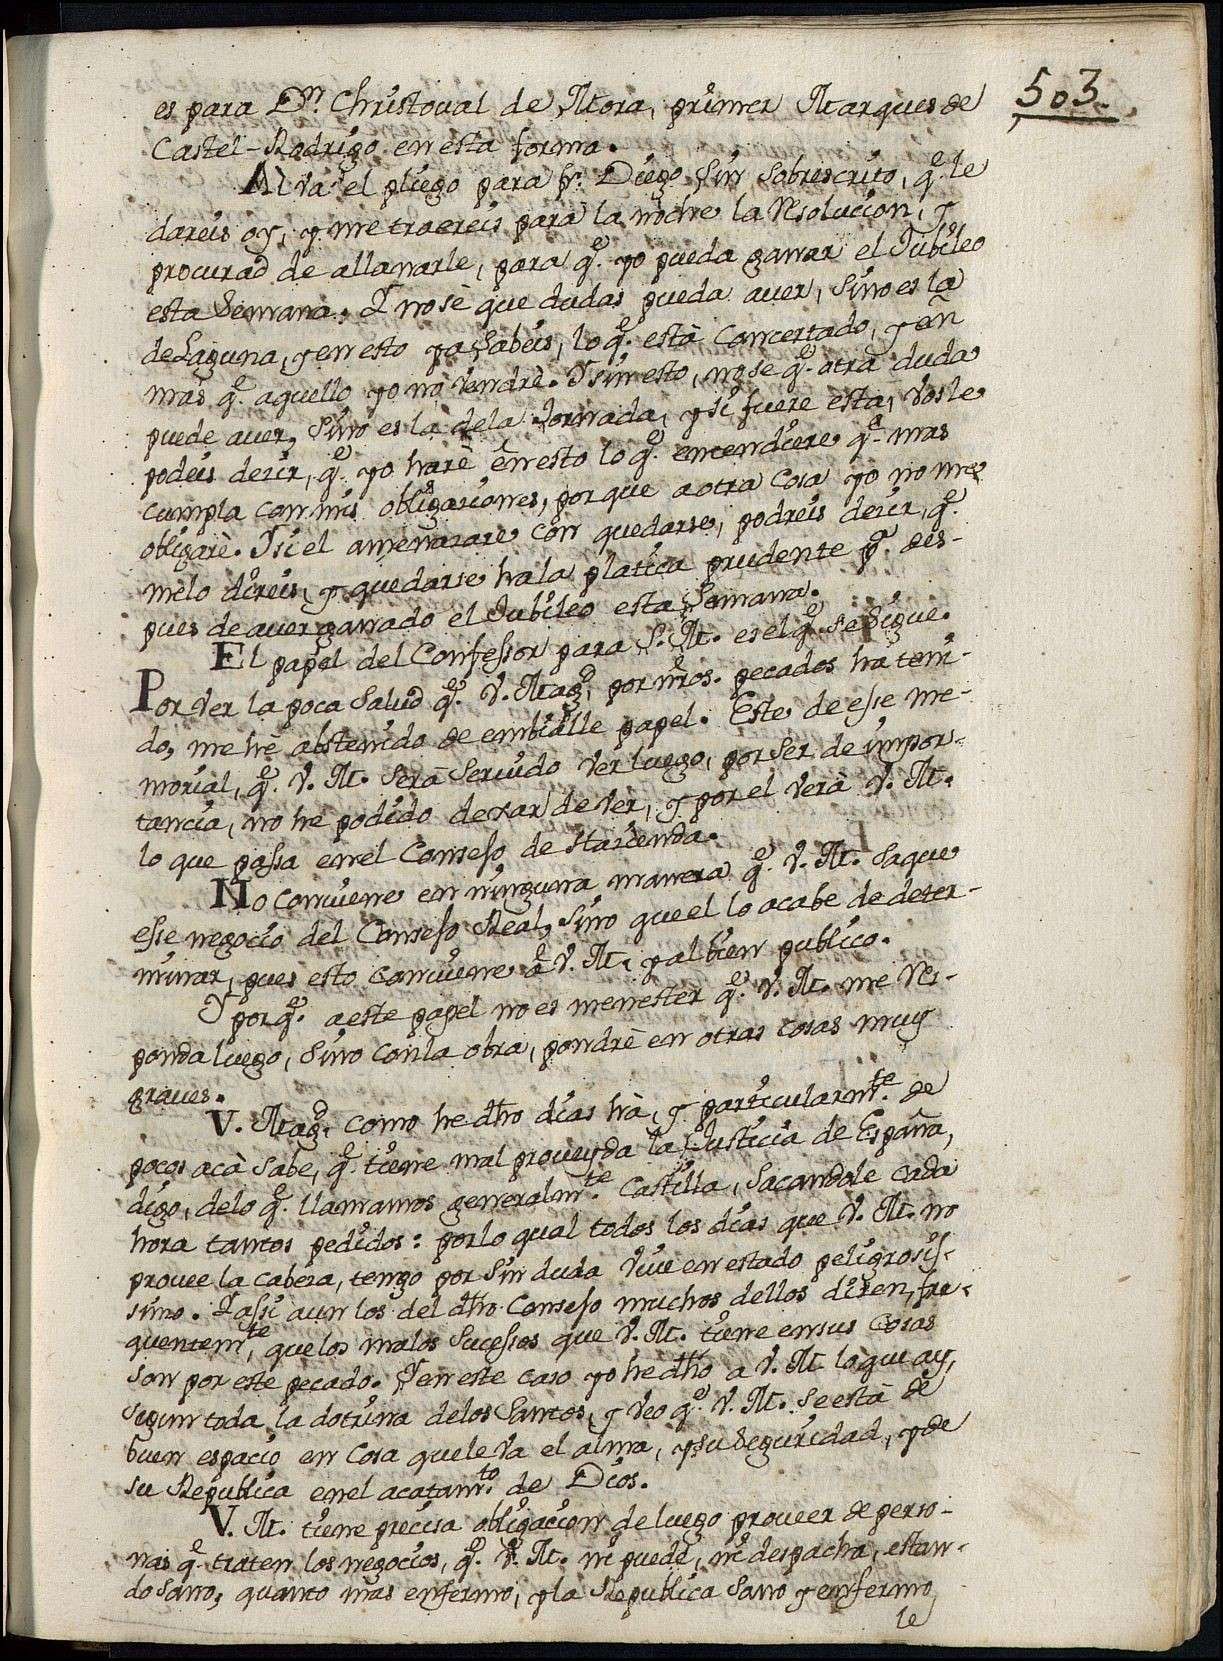 503
es para Dn. Christoual de Mora, primer Marques de
Castel-Rodrigo en esta forma.
Al va el pliego para fr. Diego sin sobrescrito, q.e le
dareis oy, y me traereis para la noche la resolucion, y
procurad de allanarle, para q.e yo pueda ganar el Jubileo
esta Semana. Y no sè que dudas pueda auer, sino es la
de Laguna, y en esto ya sabeis, lo q.e està concertado, y en
mas q.e aquello yo no vendrè. Y sin esto, no se q.e otra duda
puede auer, sino es la dela Jornada, y si fuere esta, vos le
podeis decir, q.e yo harè en esto lo q.e entendiere q.e mas
cumpla con mis obligaciones, porque a otra cosa yo no me
obligarè. Y si el amenazare con quedarse, podreis decir, q.e
melo direis, y quedarse ha la platica prudente p.a des-
pues de auer ganado el Jubileo esta Semana.
El papel del Confessor para S. M. es el q.e se sigue.
Por ver la poca salud q.e V. Mag.d por nros. pecados ha teni-
do, me hè abstenido de embialle papel. Este de esse me-
morial, q.e V. M. serà seruido ver luego, por ser de impor-
tancia, no he podido dexar de ver, y por el verà V. M.
lo que passa en el Consejo de Hazienda.
No conuiene en ninguna manera q.e V. M. saque
esse negocio del Consejo Real, sino que el lo acabe de deter-
minar, pues esto conuiene à V. M. y al bien publico.
Y porq.e a este papel no es menester q.e V. M. me res-
ponda luego, sino con la obra, pondrè en otras cosas muy
graues.
V. Mag.d como he dho dias hà, y particularm.te de
pocos acà sabe, q.e tiene mal proueyda la Justicia de España,
digo, delo q.e llamamos generalm.te Castilla, sacandole cada
hora tantos pedidos: por lo qual todos los dias que V. M. no
prouee la cabeza, tengo por sin duda viue en estado peligrosis-
simo. Y assi aun los del dho Consejo muchos dellos dizen, fre-
quentem.te, que los malos sucessos que V. M. tiene en sus cosas
son por este pecado. Y en este caso yo he dho a V. M. lo que ay,
segun toda la dotrina delos Santos, y veo q.e V. M. se està de
buen espacio en cosa que le va el alma, y su seguridad, y de
su Republica en el acatam.to de Dios.
V. M. tiene precisa obligacion de luego proueer de perso-
nas q.e traten los negocios, q.e V. M. ni puede, ni despacha, estan-
do sano, quanto mas enfermo, y la Republica sano y enfermo
le